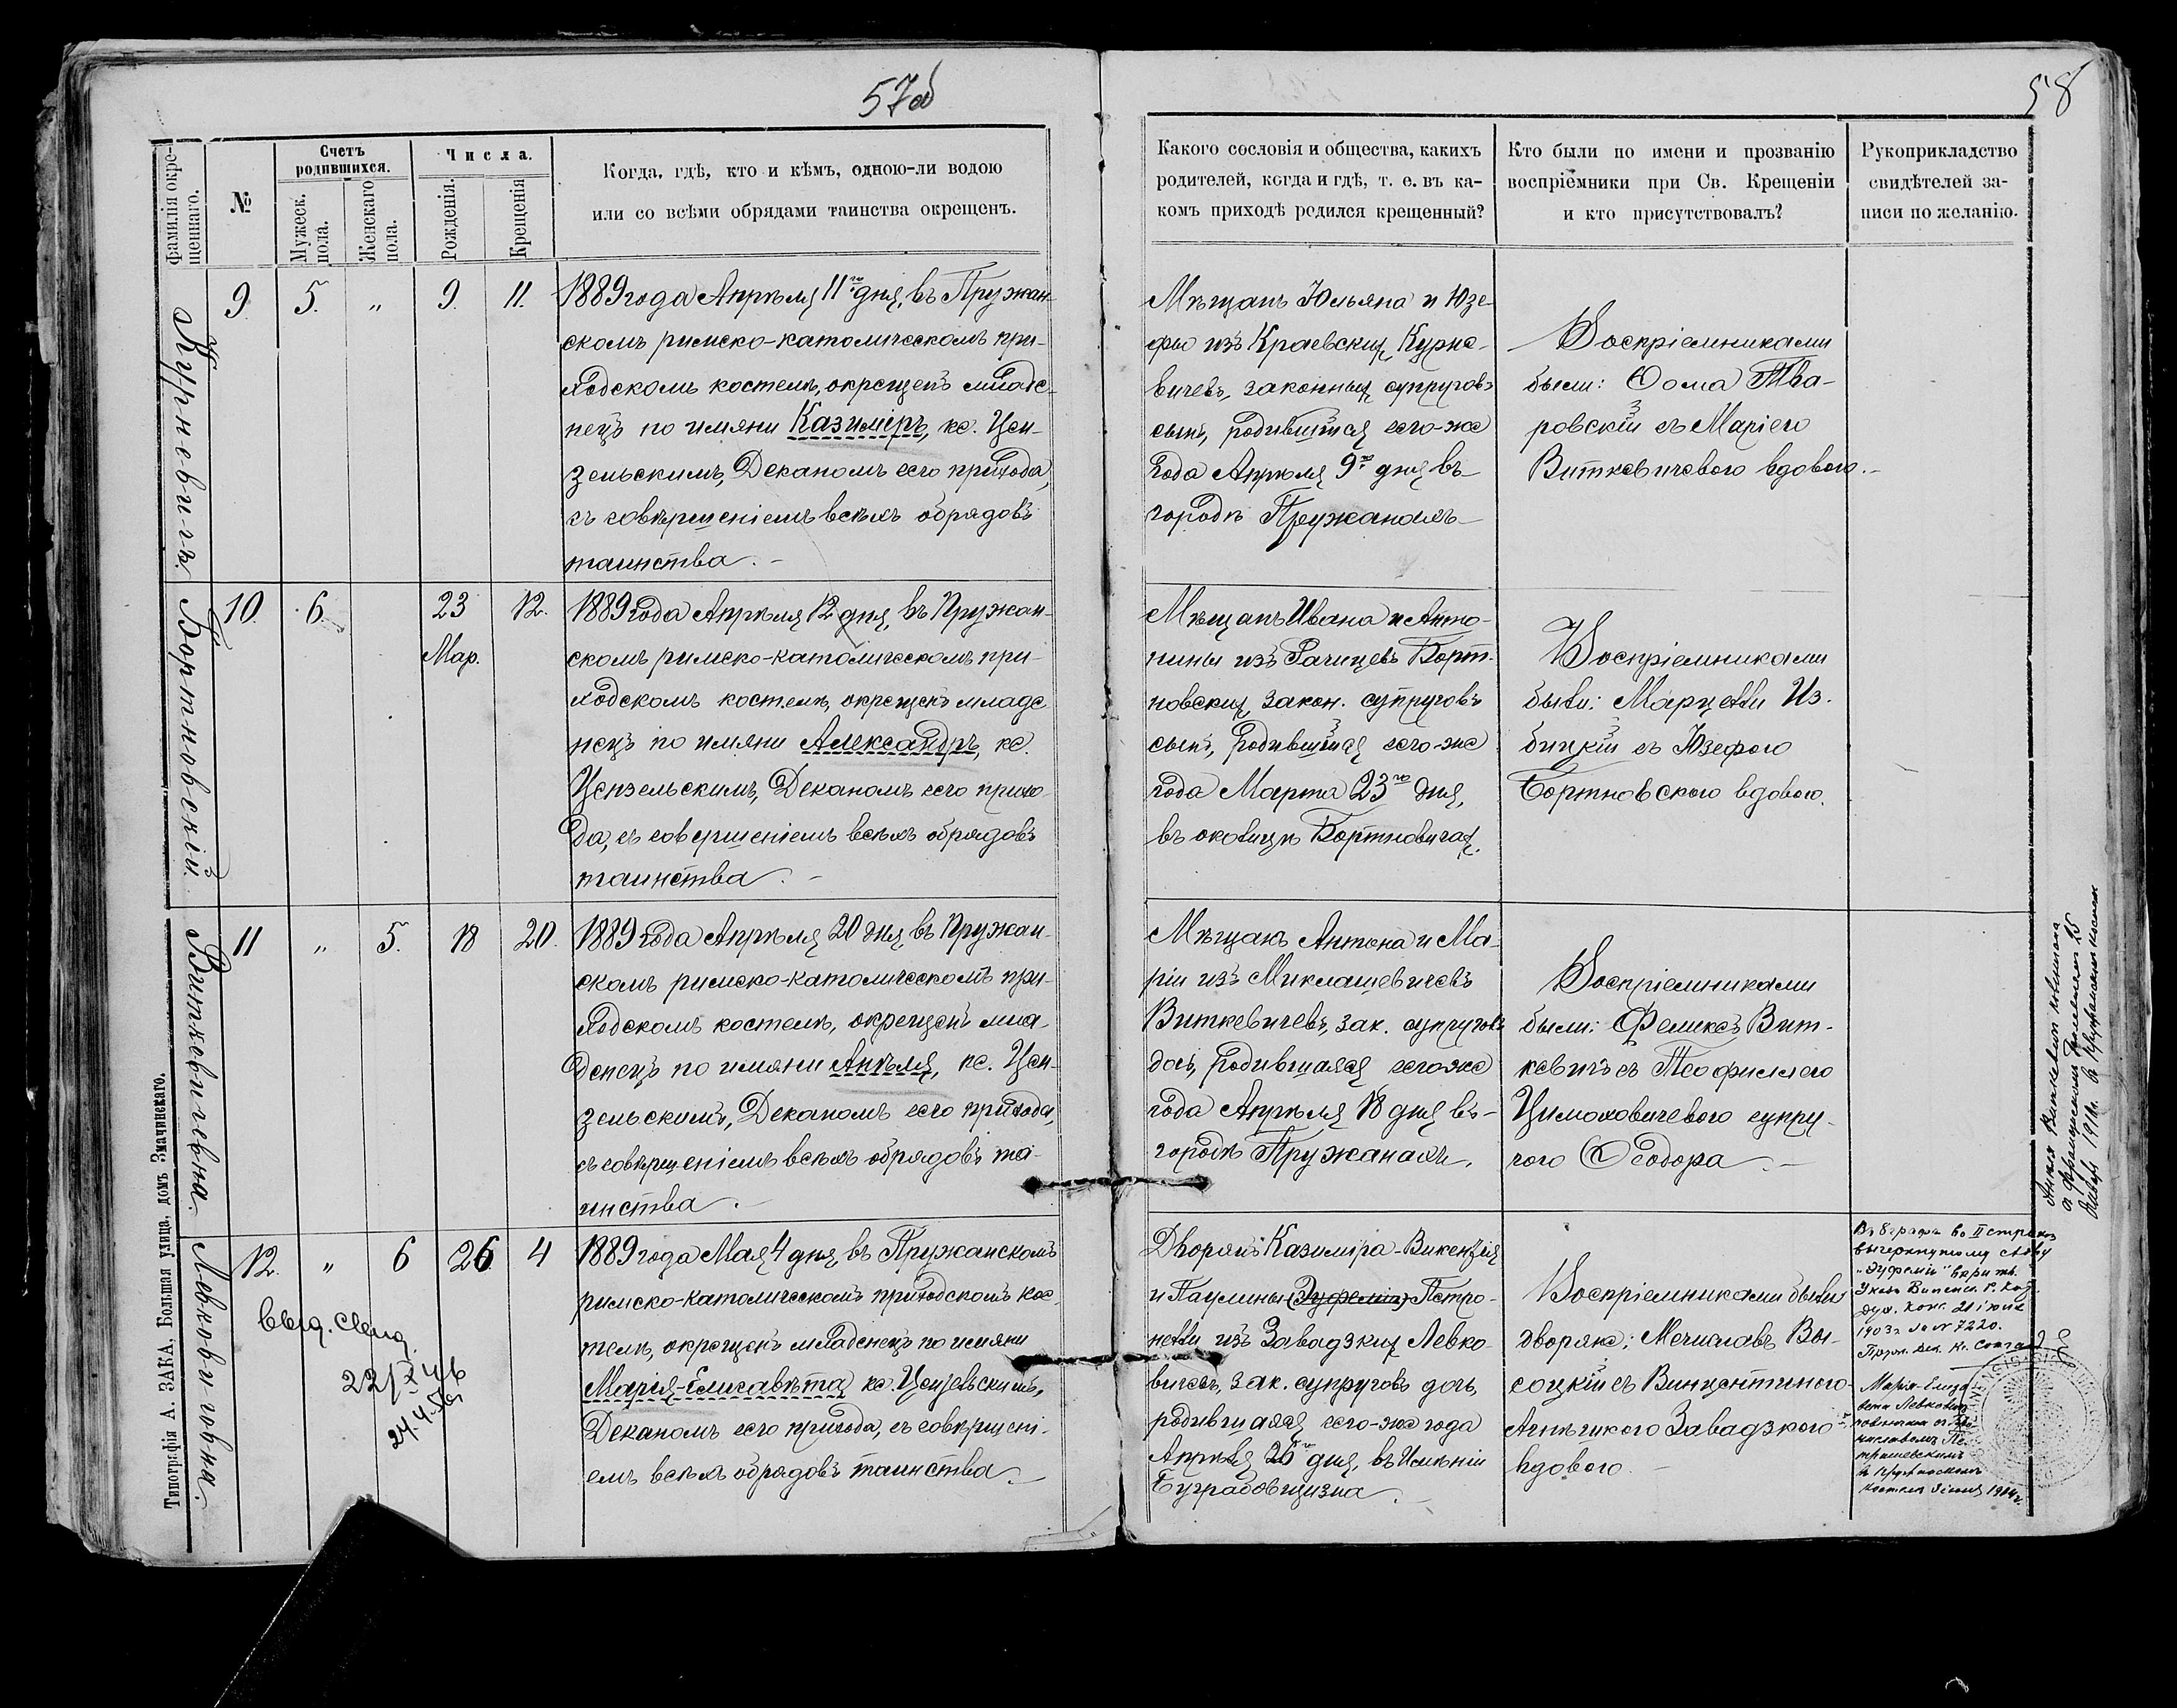 57об
58
Фамилія окре-
щеннаго.
№
Счетъ
родившихся.
Мужеск.
пола.
Женскаго
пола.
Числа.
Рожденія.
Крещенія
Когда, гдѣ, кто и кѣмъ, одною-ли водою
или со всѣми обрядами таинства окрещенъ.
Какого сословія и общества, какихъ
родителей, когда и гдѣ, т. е. въ ка-
комъ приходѣ родился крещенный?
Кто были по имени и прозванію
воспріемники при Св. Крещеніи
и кто присутствовалъ?
Рукоприкладство
свидѣтелей за-
писи по желанію.
Курневичъ.
9. 5. „ 9. 11.
1889 года Апрѣля 11го дня, въ Пружан-
скомъ римско-католическомъ при-
ходскомъ костелѣ, окрещенъ младе-
нецъ по имяни Казиміръ, кс. Цен-
зельскимъ, Деканомъ сего прихода,
съ совершеніемъ всѣхъ обрядовъ
таинства. –
Мѣщанъ Юльяна и Юзе-
фы изъ Краевскихъ Курне-
вичевъ, законныхъ супруговъ
сынъ, родившійся сего-же
года Апрѣля 9го дня въ
городѣ Пружанахъ
Воспріемниками
были: Ѳома Тва-
ровскій съ Маріею
Виткевичевою вдовою. –
Бортновскій.
10. 6. 23 12.
Мар.
1889 года Апрѣля 12 дня, въ Пружан-
скомъ римско-католическомъ при-
ходскомъ костелѣ, окрещенъ младе
нецъ по имяни Александръ, кс.
Цензельскимъ, Деканомъ сего прихо-
да, съ совершеніемъ всѣхъ обрядовъ
таинства. –
Мѣщанъ Ивана и Анто-
нины изъ Рачицевъ Борт-
новскихъ закон. супруговъ
сынъ, родившійся сего-же
года Марта 23го дня,
въ околицѣ Бортновичахъ.
Воспріемниками
были: Марцелли Из-
бицкій съ Юзефою
Бортновскою вдовою.
Виткевичевна.
11 „ 5. 18 20.
1889 года Апрѣля 20 дня въ Пружан-
скомъ римско-католическомъ при-
ходскомъ костелѣ, окрещенъ мла-
денецъ по имяни Анѣля, кс. Цен-
зельскимъ, Деканомъ сего прихода,
съ совершеніемъ всѣхъ обрядовъ та-
инства. –
Мѣщанъ Антона и Ма-
ріи изъ Миклашевичевъ
Виткевичевъ, зак. супруговъ
дочь, родившаяся сего-же
года Апрѣля 18 дня въ
городѣ Пружанахъ.
Воспріемниками
были: Феликсъ Вит-
кевичъ съ Теофиллею
Цимоховичевою супру-
гою Ѳеодора. –
Анеля Виткевичъ повѣнчана
25
Января 1911г. въ Пружанскомъ костелѣ
Левковичовна.
12. „ 6 26 4
выд. свид.
22/X 46
1889 года Мая 4 дня, въ Пружанскомъ
римско-католическомъ приходскомъ кос-
телѣ, окрещенъ младенецъ по имяни
Марія-Елисавѣта кс. Цензельскимъ,
Деканомъ сего прихода, съ совершені-
емъ всѣхъ обрядовъ таинства. –
Дворянъ Казиміра-Викентія
и Паулины (Эуфеміи) Петро-
нелли изъ Завадзкихъ Левко-
вичевъ, зак. супруговъ дочь,
родившаяся сего-же года
Апрѣля 26го дня, въ Имѣніи
Буградовщизна. –
Воспріемниками были
дворяне: Мечиславъ Вы-
соцкій съ Винцентиною-
Агнѣшкою Завадзкою –
вдовою. –
Въ 8 графѣ во II строкѣ
вычеркнутому слову
„Эуфеміи“ вѣрить.
Указъ Виленск. Р. Кат.
Дух. Конс. 21 іюня
1903 г. за № 7220.
Пруж. Дек. Кс.
Марія-Елиза-
вета Левкович
повѣнчана съ
въ Пружанскомъ
костелѣ 1914 г.
Типографія А. ЗАКА, Большая улица, домъ Змачинскаго.